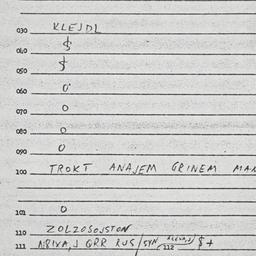 030 KLEJDL
040 $
050 $
060 0
070 0
080 0
090 0
100 TROKT ANAJEM GRINEM MAN
101 0
110 ZOLZOSOJSTON
111 112 $ +